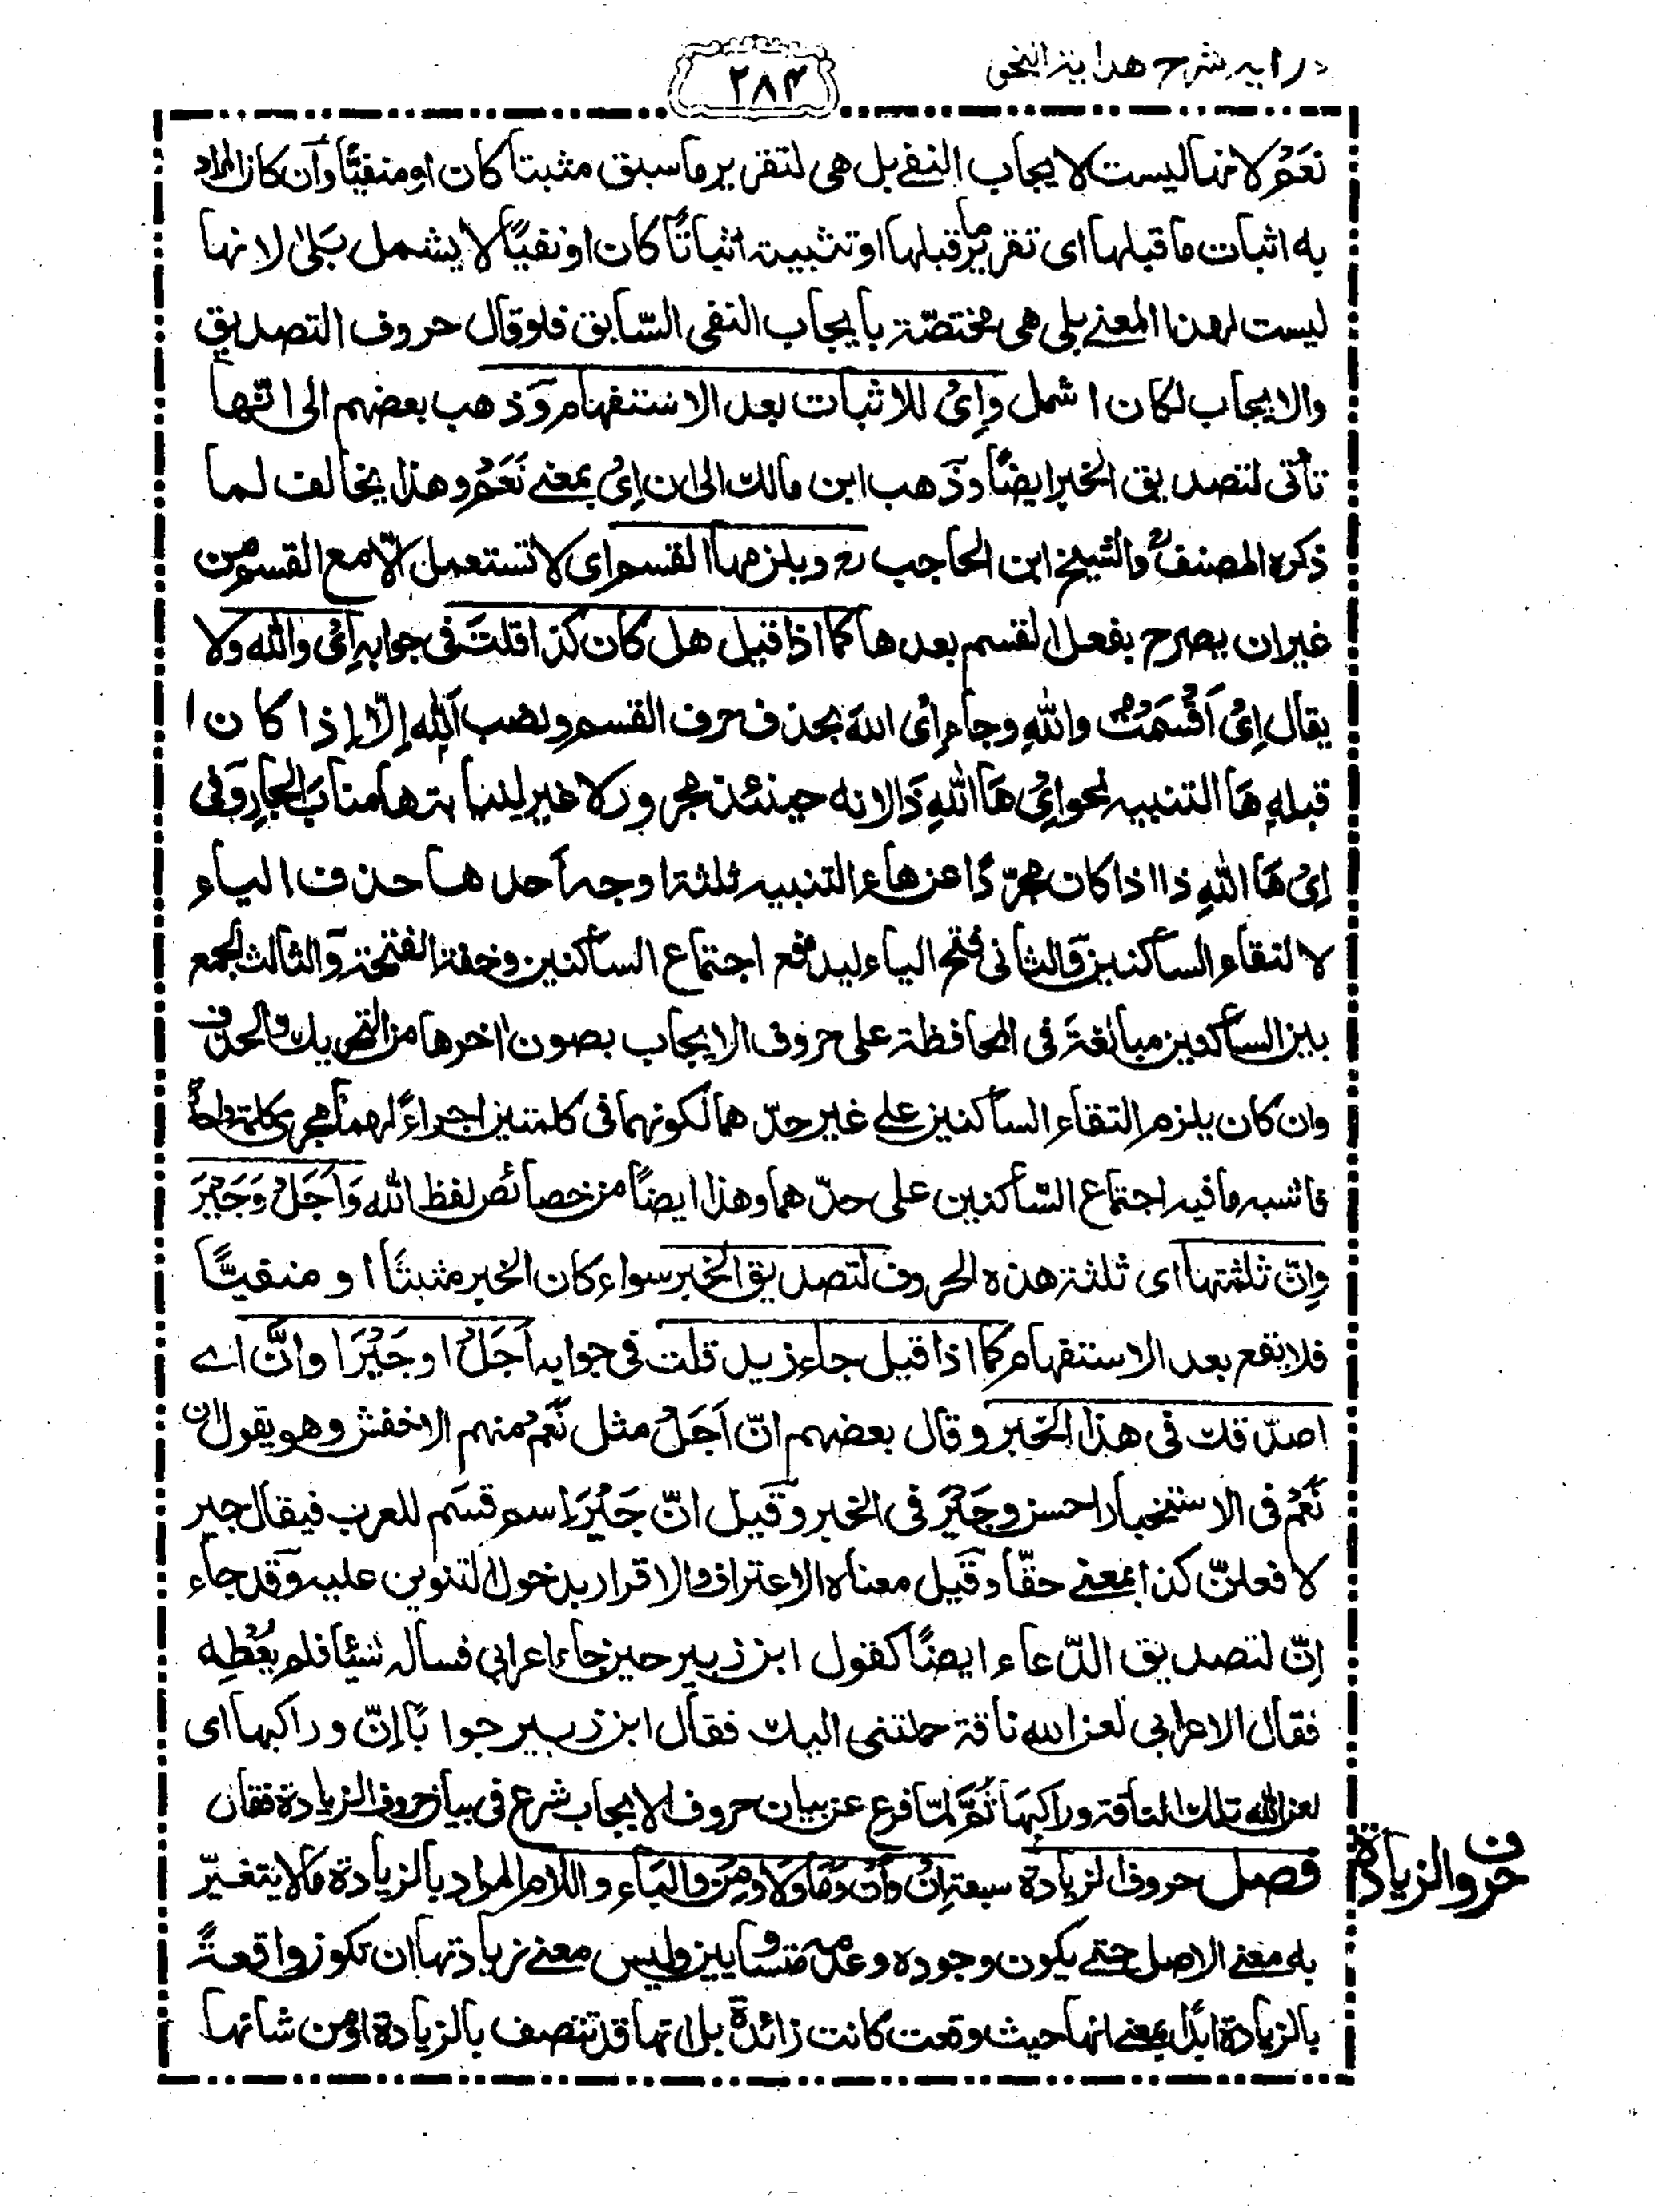 درايہ شرح هداية النحو
۲۸۴
نَعَمْ لانها ليست لايجاب النفے بل هی لتقرير ما سبق مثبتا كان او منفيًّا وان كان المراد
به اثبات ما قبلها ای تقرير ما قبلها او تثبيته اثباتًا كان او نفيًا لا يشمل بَلیٰ لانها
ليست لهذا المعنے بلی هی مختصّة بايجاب النفی السّابق فلو قال حروف التصديق
والايجاب لكان اشمل وَاِیْ للاثبات بعد الاستفهام وَذهب بعضهم الی انّها
تأتی لتصديق الخبر ايضًا وذَهب ابن مالك الی ان اِیْ بمعنے نَعَمْ وهذا يخالف لما
ذكره المصنفؒ والشيخ ابن الحاجب رح ويلزمها القسم ای لا تستعمل الّا مع القسم من
غير ان يصرح بفعل القسم بعدها كما اذا قيل هل كان كذا قلتَ فی جوابه اِیْ والله ولا
يقال اِیْ اَقْسَمْتُ واللهِ وجاء اِیْ اللهَ بحذف حرف القسم ونصب اَللّٰه اِلّا اِذا كان ا
قبله هَا التنبيه نحو اِیْ هَا اللهِ ذَا لانه حينئذ مجرور لا غير لنيابتها مناب الجار وَفی
اِیْ هَا اللهِ ذا اذا كان مجرّدًا عن هاء التنبيه ثلثة اوجه اَحدها حذف الياء
لالتقاء الساكنين وَالثانی فتح الياء ليدفع اجتماع الساكنين وخفة الفتحة وَالثالث الجمع
بين الساكنين مبالغةً فی المحافظة علی حروف الايجاب بصون اٰخرها من التحريك والحذف
وان كان يلزم التقاء الساكنين علے غير حدّهما لكونهما فی كلمتين اجراءً لهما مجری كلمة واحدة
فاشبه ما فيه اجتماع السّاكنين علی حدّهما وهذا ايضًا من خصائص لفظ الله وَاَجَلْ وَجَيْرَ
وَاِنّ ثلثتها ای ثلثة هذه الحروف لتصديق الخبر سواء كان الخبر مثبتًا او منفيًّا
فلا يقع بعد الاستفهام كما اذا قيل جاء زيد قلت فی جوابه اَجَلْ او جَيْرَ او اِنَّ اے
اصدّقك فی هذا الخبر وقال بعضهم انّ اَجَلْ مثل نَعَمْ منهم الاخفش وهو يقول ان
نَعَمْ فی الاستخبار احسن وجَيْرَ فی الخبر وقَيل انّ جَيْرَ اِسم قسَم للعرب فيقال جير
لافعلنّ كذا بمعنے حقّا وقَيل معناه الاعتراف والاقرار بدخول التنوين عليه وَقد جاء
اِنّ لتصديق الدّعاء ايضًا كقول ابن زبير حين جاء اعرابی فساله شئًا فلم يُعْطِه
فقال الاعرابی لعن الله ناقة حملتنی اليك فقال ابن زبير جوابًا اِنّ وراكبها ای
لعن الله تلك الناقة وراكبها ثُمَّ لمّا فرغ عن بيان حروف الايجاب شرع فی بيان حروف الزيادة فقال
فصل حروف الزيادة سبعة اِنْ وَاَنْ وَمَا وَلَا وَمِنْ والبَاء واللام المراد بالزيادة ما لا يتغيّر
به معنے الاصل حتے يكون وجوده وعدمه متساويين وليس معنے زيادتها ان تكون واقعةً
بالزيادة ابدًا بمعنے انها حيث وقعت كانت زائدة بل انها قد تتصف بالزيادة او من شانها
حروف الزيادة